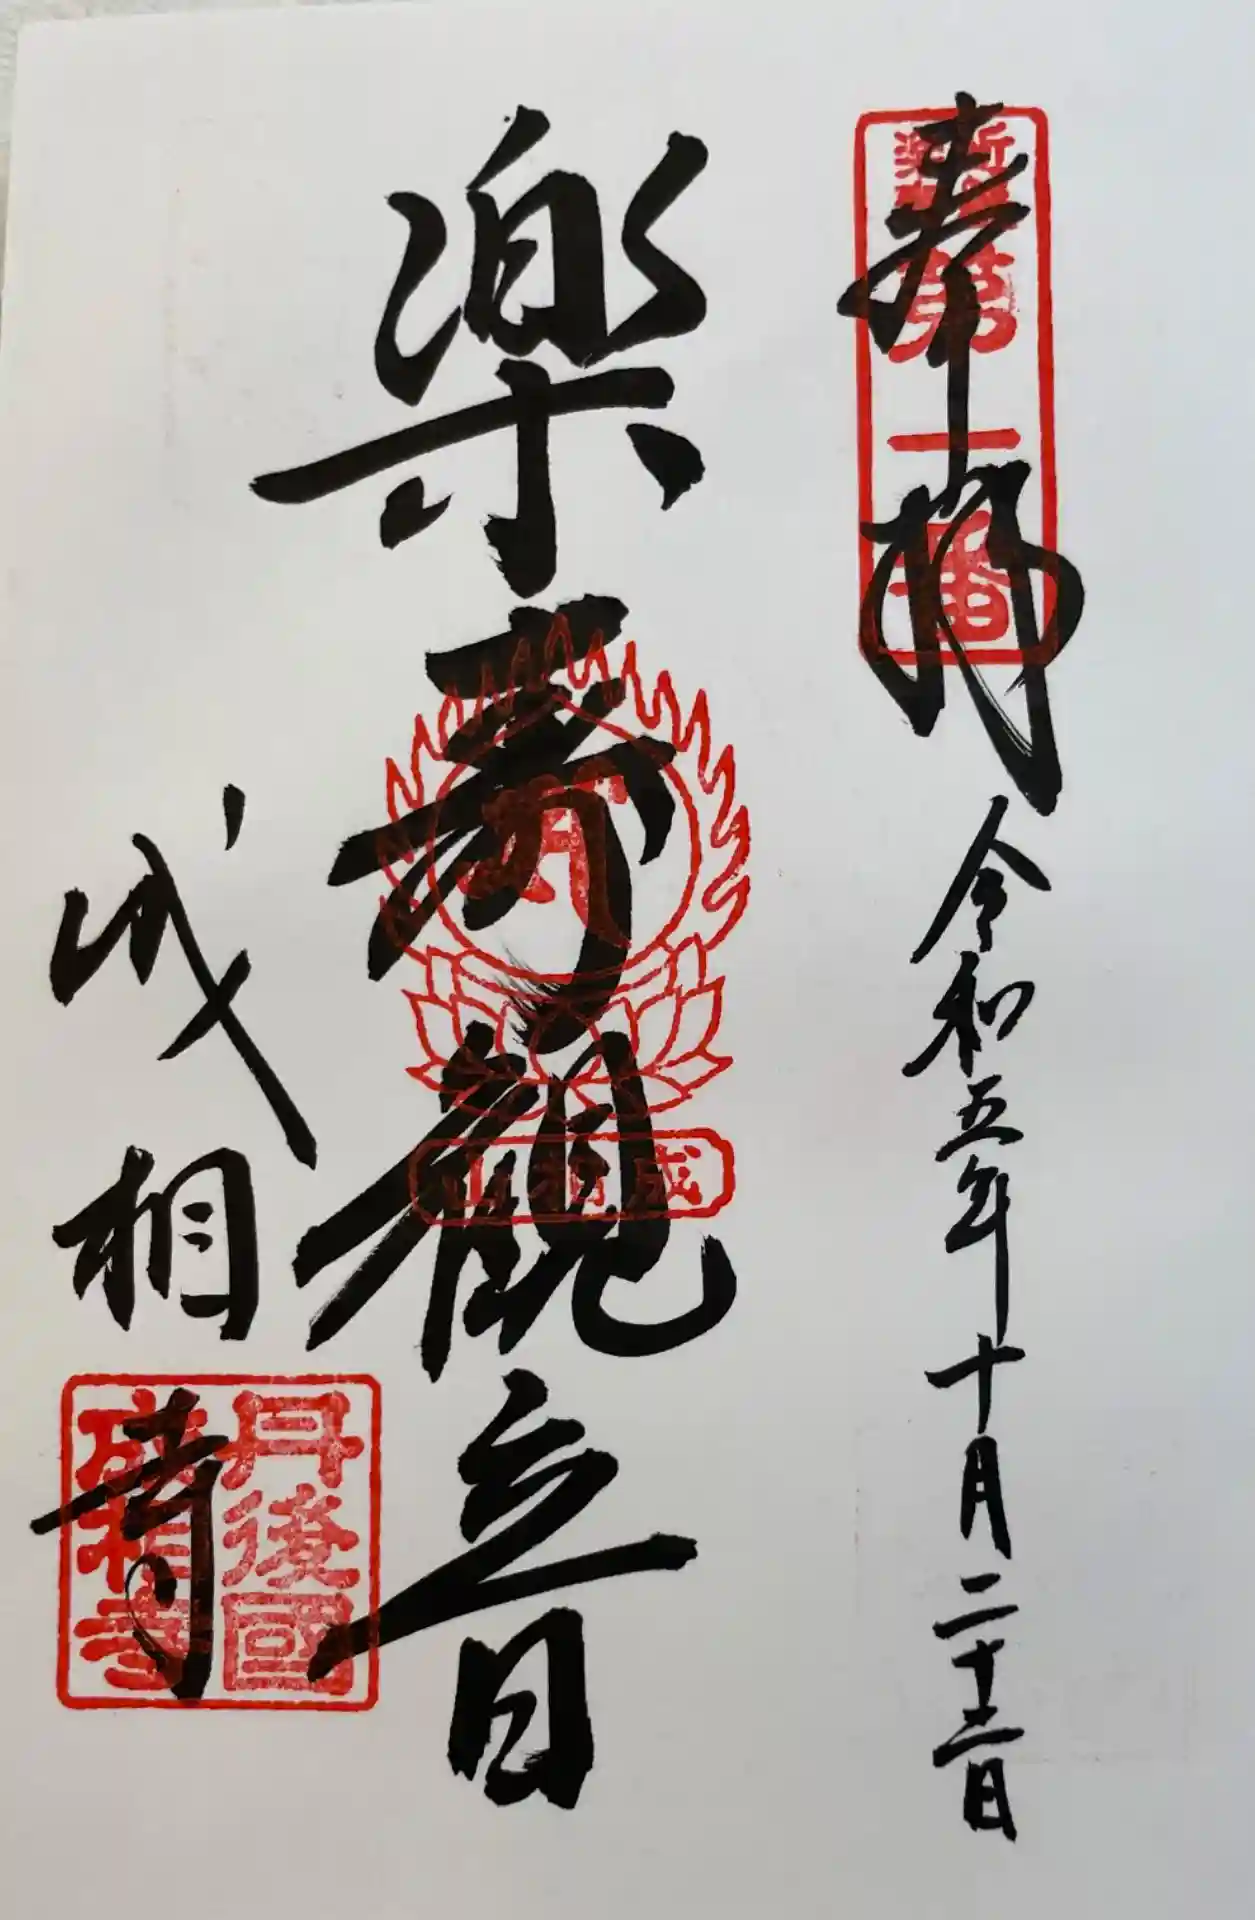 奉拝
近畿
楽寿
第一番
令和五年十月二十三日
楽寿観音
成相山
成相寺
丹後國
成相寺